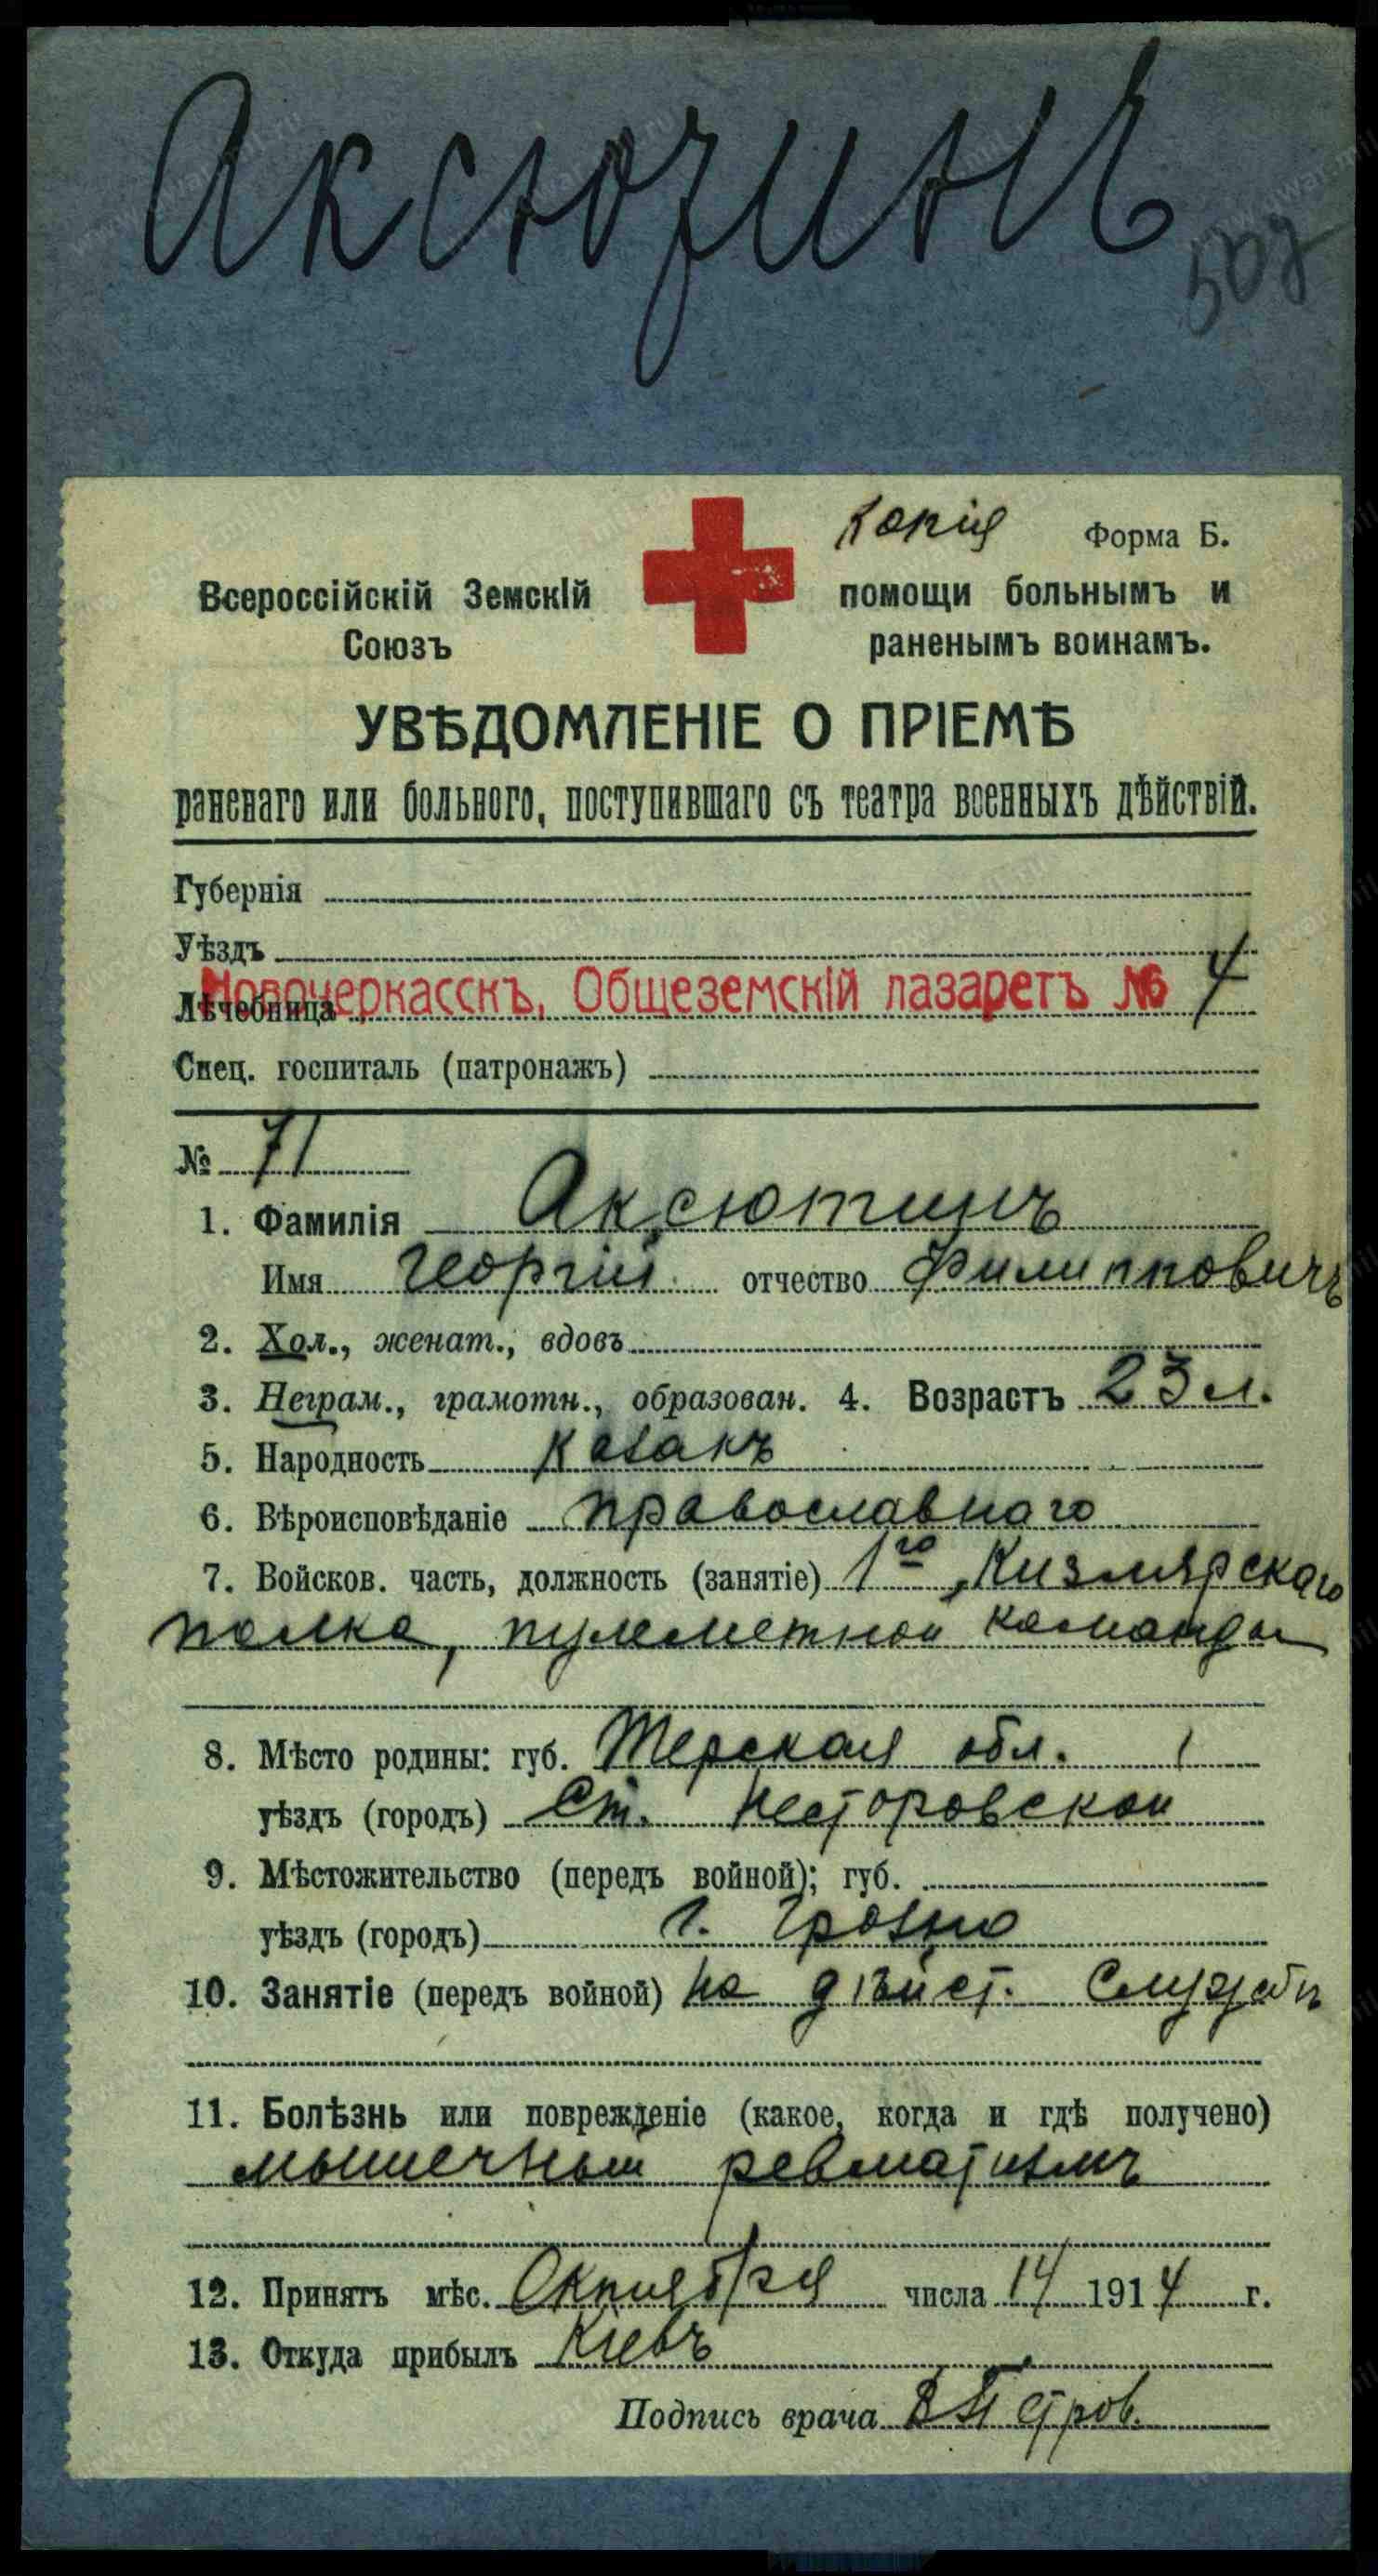 Аксютинъ
Копія Форма Б.
Всероссійскій Земскій помощи больнымъ и
Союзъ раненымъ воинамъ.
УВѢДОМЛЕНІЕ О ПРІЕМѢ
раненаго или больного, поступившаго съ театра военныхъ дѣйствій.
Губернія
Уѣздъ
Лѣчебница Новочеркасскъ, Общеземскій лазаретъ № 4
Спец. госпиталь (патронажъ)
№ 71
1. Фамилія Аксютинъ
Имя Георгій отчество Филипповичъ
2. Хол., женат., вдовъ
3. Неграм., грамотн., образован. 4. Возрастъ 23 л.
5. Народность Казакъ
6. Вѣроисповѣданіе православнаго
7. Войсков. часть, должность (занятіе) 1го Кизлярскаго
полка, пулеметной команды
8. Мѣсто родины: губ. Терская обл.
уѣздъ (городъ) Ст. Несторовской
9. Мѣстожительство (передъ войной); губ.
уѣздъ (городъ) г. Грозно
10. Занятіе (передъ войной) на дѣйст. службѣ
11. Болѣзнь или поврежденіе (какое, когда и гдѣ получено)
мышечный ревматизмъ
12. Принятъ мѣс. Октября числа 14 1914 г.
13. Откуда прибылъ Кіевъ
Подпись врача В Петров.